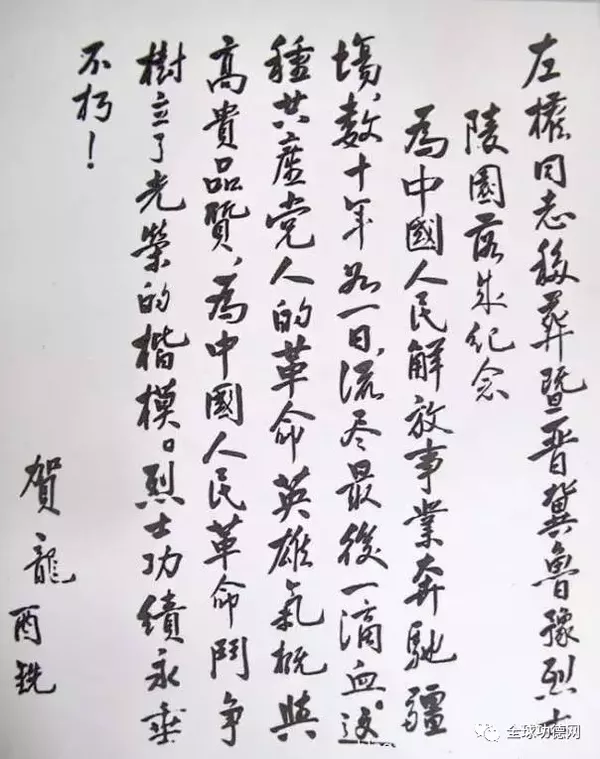 左權同志移葬暨晋冀魯豫烈士
陵園落成纪念
為中國人民解放事業奔馳疆
場，数十年如一日，流尽最後一滴血。这
種共產党人的革命英雄氣概與
高貴品質，為中國人民革命鬥争
樹立了光榮的楷模。烈士功績永垂
不朽！
賀龍
西铣
全球功德网